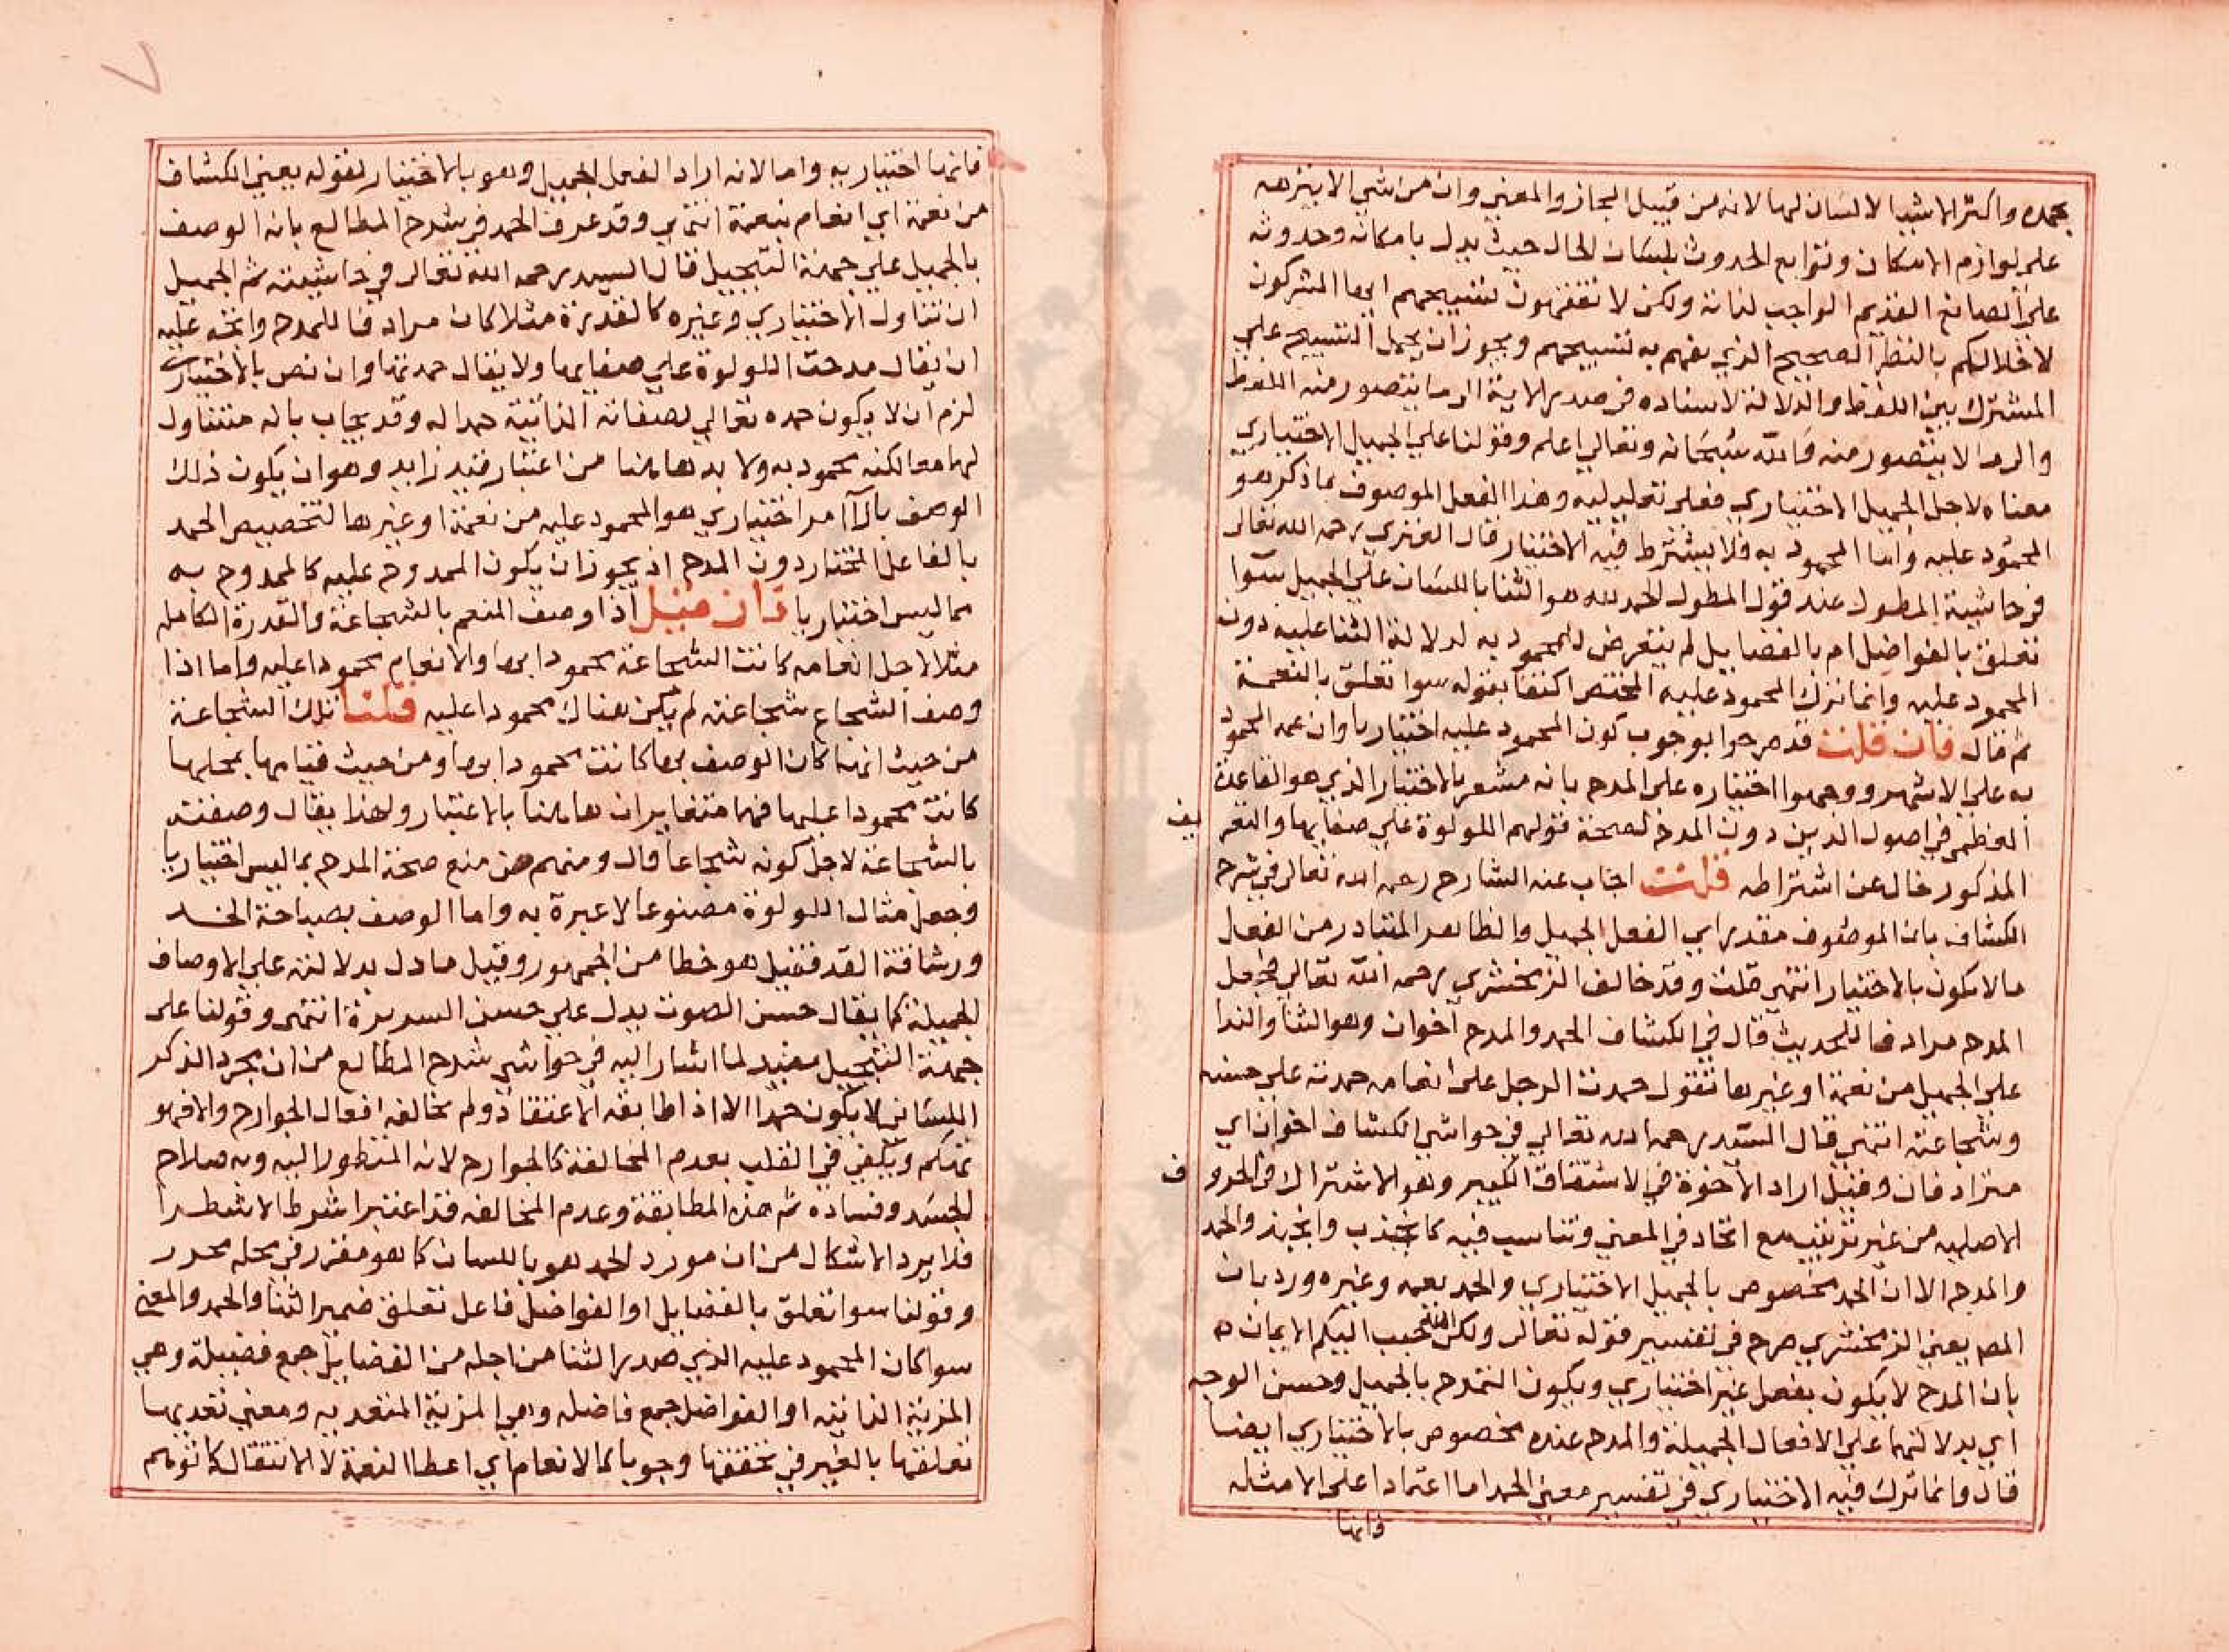 بحمده واكثر الاشيا لا لسان لها لانه من قبيل المجاز والمعني وان من شي الا ينزهه
علي لوازم الامكان وتوابع الحدوث بلسان الحال حيث يدل بامكانه وحدوثه
علي الصانع القديم الواجب لذاته ولكن لا تفقهون تسبيحهم ايها المشركون
لاخلالكم بالنظر الصحيح الذي يفهم به تسبيحهم ويجوز ان يحمل التسبيح علي
المشترك بين اللفظ والدلالة لاسناده في صدر الاية الي ما يتصور منه اللفظ
والي ما لا يتصور منه والله سبحانه وتعالي اعلم وقولنا علي الجميل الاختياري
معناه لاجل الجميل الاختياري فعلي تعليليه وهذا الفعل الموصوف بما ذكر هو
المحمود عليه واما المحمود به فلا يشترط فيه الاختيار قال الفنري رحمه الله تعالي
في حاشية المطول عند قول المطول الحمد لله هو الثنا باللسان علي الجميل سوا
تعلق بالفواضل ام بالفضايل لم يتعرض للمحمود به لدلالة الثنا عليه دون
المحمود عليه وانما ترك المحمود عليه المختص اكتفا بقوله سوا تعلق بالنعمة
ثم قال فان قلت قد صرحوا بوجوب كون المحمود عليه اختياريا وان عم المحمود
به علي الاشهر ووجهوا اختياره علي المدح بانه مشعر بالاختيار الذي هو القاعدة
العظمي في اصول الدين دون المدح لصحة قولهم اللولوة علي صفايها والتعريف
المذكور خال عن اشتراطه قلت اجاب عنه الشارح رحمه الله تعالي في شرح
الكشاف بان الموصوف مقدر اي الفعل الجميل والظاهر المتبادر من الفعل
ما لا يكون بالاختيار انتهي قلت وقد خالف الزمخشري رحمه الله تعالي فجعل
المدح مرادفا للحمد حيث قال في الكشاف الحمد والمدح اخوان وهو الثنا والندا
علي الجميل من نعمة او غيرها تقول حمدت الرجل علي انعامه حمدته علي حسبه
وشجاعته انتهي قال السعد رحمه الله تعالي في حواشي الكشاف اخوان اي
مترادفان وقيل اراد الاخوة في الاشتقاق الكبير وهو الاشتراك في الحروف
الاصليه من غير ترتيب مع اتحاد في المعني وتناسب فيه كالجذب والجبذ والحمد
والمدح الا ان الحمد مخصوص بالجميل الاختياري والحمد يعمه وغيره ورد بان
المص يعني الزمخشري صرح في تفسير قوله تعالي ولكن الله حبب اليكم الايمان
بان المدح لا يكون بفعل غير اختياري ويكون التمدح بالجميل وحسن الوجه
اي بدلالتهما علي الافعال الجميلة والمدح عنده مخصوص بالاختياري ايضا
قال وانما ترك قيد الاختياري في تفسير معني الحمد اما اعتمادا علي الامثله
فانها
فانها اختياريه واما لانه اراد الفعل الجميل وهو بالاختيار لقوله يعني الكشاف
من نعمة اي انعام بنعمة انتهي وقد عرف الحمد في شرح المطالع بانه الوصف
بالجميل علي جهة التبجيل قال السيد رحمه الله تعالي في حاشيته ثم الجميل
ان تناول الاختياري وغيره كالقدرة مثلا كان مرادفا للمدح واتجه عليه
ان يقال مدحت اللولوة علي صفايها ولا يقال حمدتها وان خص بالاختياري
لزم ان لا يكون حمده تعالي لصفاته الذاتية حمدا له وقد يجاب بانه متناول
لهما معا لكنه محمود به ولا بد هاهنا من اعتبار قيد زايد وهو ان يكون ذلك
الوصف بازا امر اختياري هو المحمود عليه من نعمة او غيرها لتخصيص الحمد
بالفاعل المختار دون المدح اذ يجوز ان يكون الممدوح عليه كالممدوح به
مما ليس اختياريا فان قيل اذا وصف المنعم بالشجاعة والقدرة الكامله
مثلا لاجل انعامه كانت الشجاعة محمودا بها والانعام محمودا عليه واما اذا
وصف الشجاع بشجاعته لم يكن هناك محمودا عليه قلنا تلك الشجاعة
من حيث انها كان الوصف بها كانت محمودا بها ومن حيث قيامها بمحلها
كانت محمودا عليها فهما متغايران هاهنا بالاعتبار ولهذا يقال وصفته
بالشجاعة لاجل كونه شجاعا قال ومنهم من منع صحة المدح بما ليس اختياريا
وجعل مثال اللولوة مصنوعا لا عبرة به واما الوصف بصباحة الخد
ورشاقة القد فقيل هو خطا من الجمهور وقيل ما دل بدلالته علي الاوصاف
الجميلة كما يقال حسن الصوت يدل علي حسن السريرة انتهي وقولنا علي
جهة التبجيل مفيد لما اشار اليه في حواشي شرح المطالع من ان مجرد الذكر
اللساني لا يكون حمدا الا اذا طابقه الاعتقاد ولم تخالفه افعال الجوارح والا فهو
تهكم ويكفي في القلب بعدم المخالفة كالجوارح لانه المنظور اليه وبه صلاح
الجسد وفساده ثم هذه المطابقة وعدم المخالفه قد اعتبرا شرطا لا شطرا
فلا يرد الاشكال من ان مورد الحمد هو باللسان كما هو مقرر في محله محرر
وقولنا سوا تعلق بالفضايل او الفواضل فاعل تعلق ضمير الثنا والحمد والمعني
سوا كان المحمود عليه الذي صدر الثنا من اجله من الفضايل جمع فضيلة وهي
المزية الذاتيه او الفواضل جمع فاضله وهي المزية المتعديه ومعني تعديها
تعلقها بالغير في تحققها وجوبا كالانعام اي اعطا النعمة لا الانتقال كما توهم